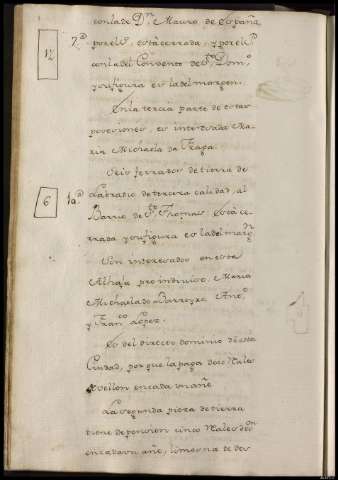 con la de Dn. Mauro de España
12 7a por el S. está cerrada, y por el P.
con la del Convento de Sto. Domo.
y su figura es la del margen.
En la tercia parte de estas
posesiones, es interesada Ma-
ria Michaela da Fraga.
Seis ferrados de tierra de
6 1a. Labradio de tercera calidad, al
Barrio de Sto. Thomas, está ce-
rrada y su figura es la del margn.
Son interesados en esta
Alhaja proindiviso, Maria
Michaela do Barreyro Anto.
y Franco. Lopez.
Es del directo dominio de esta
Ciudad, por que la paga doce Reales
Vellon en cada un año
La segunda pieza de tierra
tiene de pension cinco Reales de on
en cada un año, limosna de dos